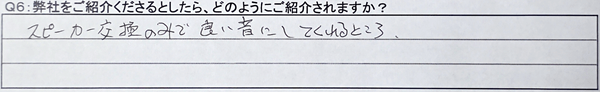 Q6：弊社をご紹介くださるとしたら、どのようにご紹介されますか？
スピーカー交換のみで良い音にしてくれるところ、